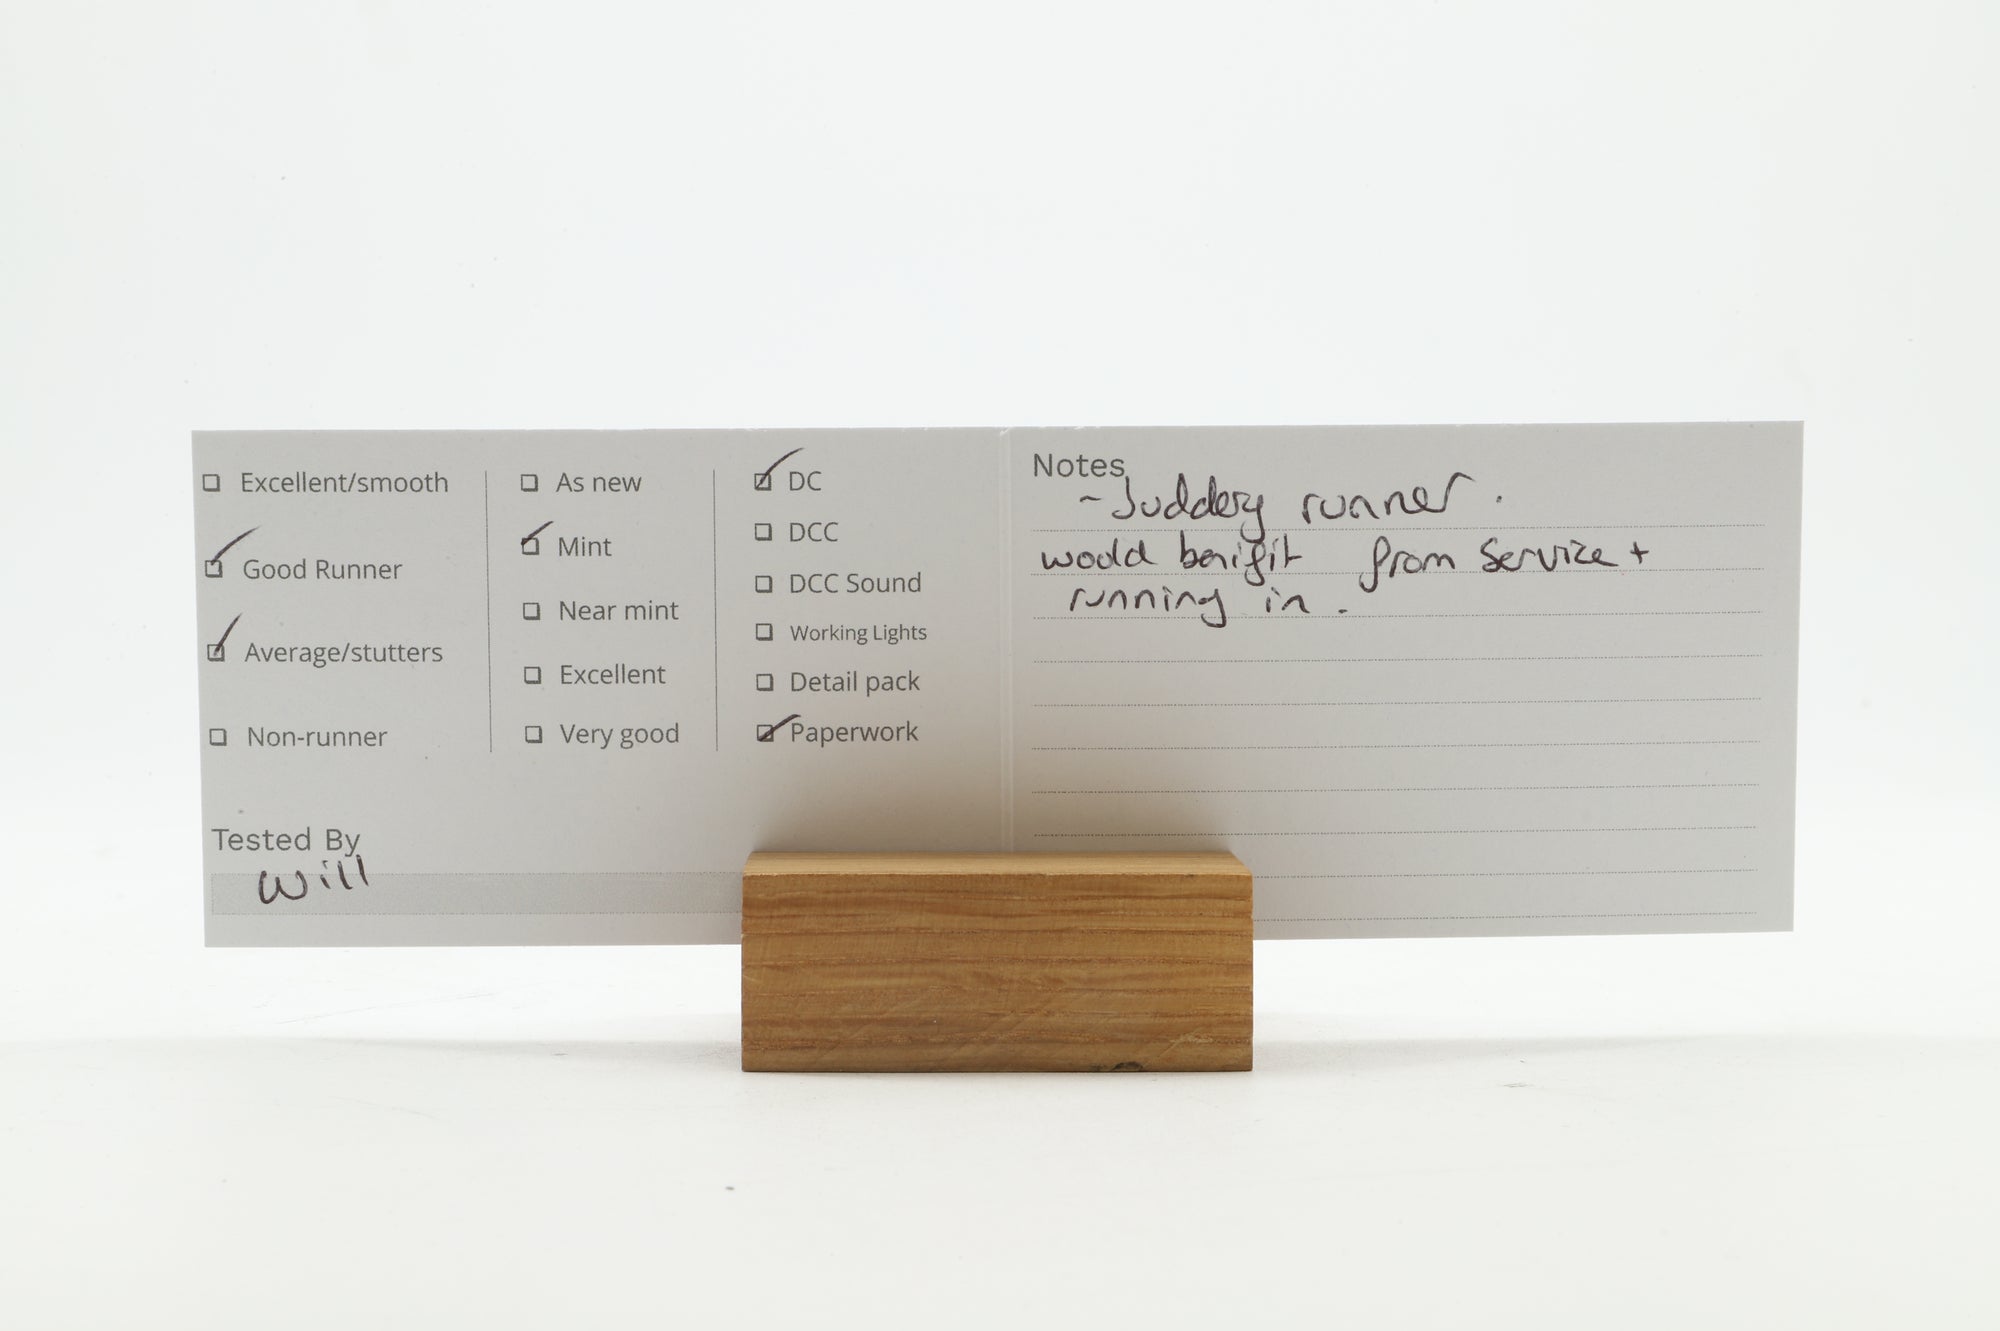 Excellent/smooth
Good Runner
Average/stutters
Non-runner
As new
Mint
Near mint
Excellent
Very good
DC
DCC
DCC Sound
Working Lights
Detail pack
Paperwork
Tested By
Will
Notes
- Juddery runner.
would benifit from Service +
running in.